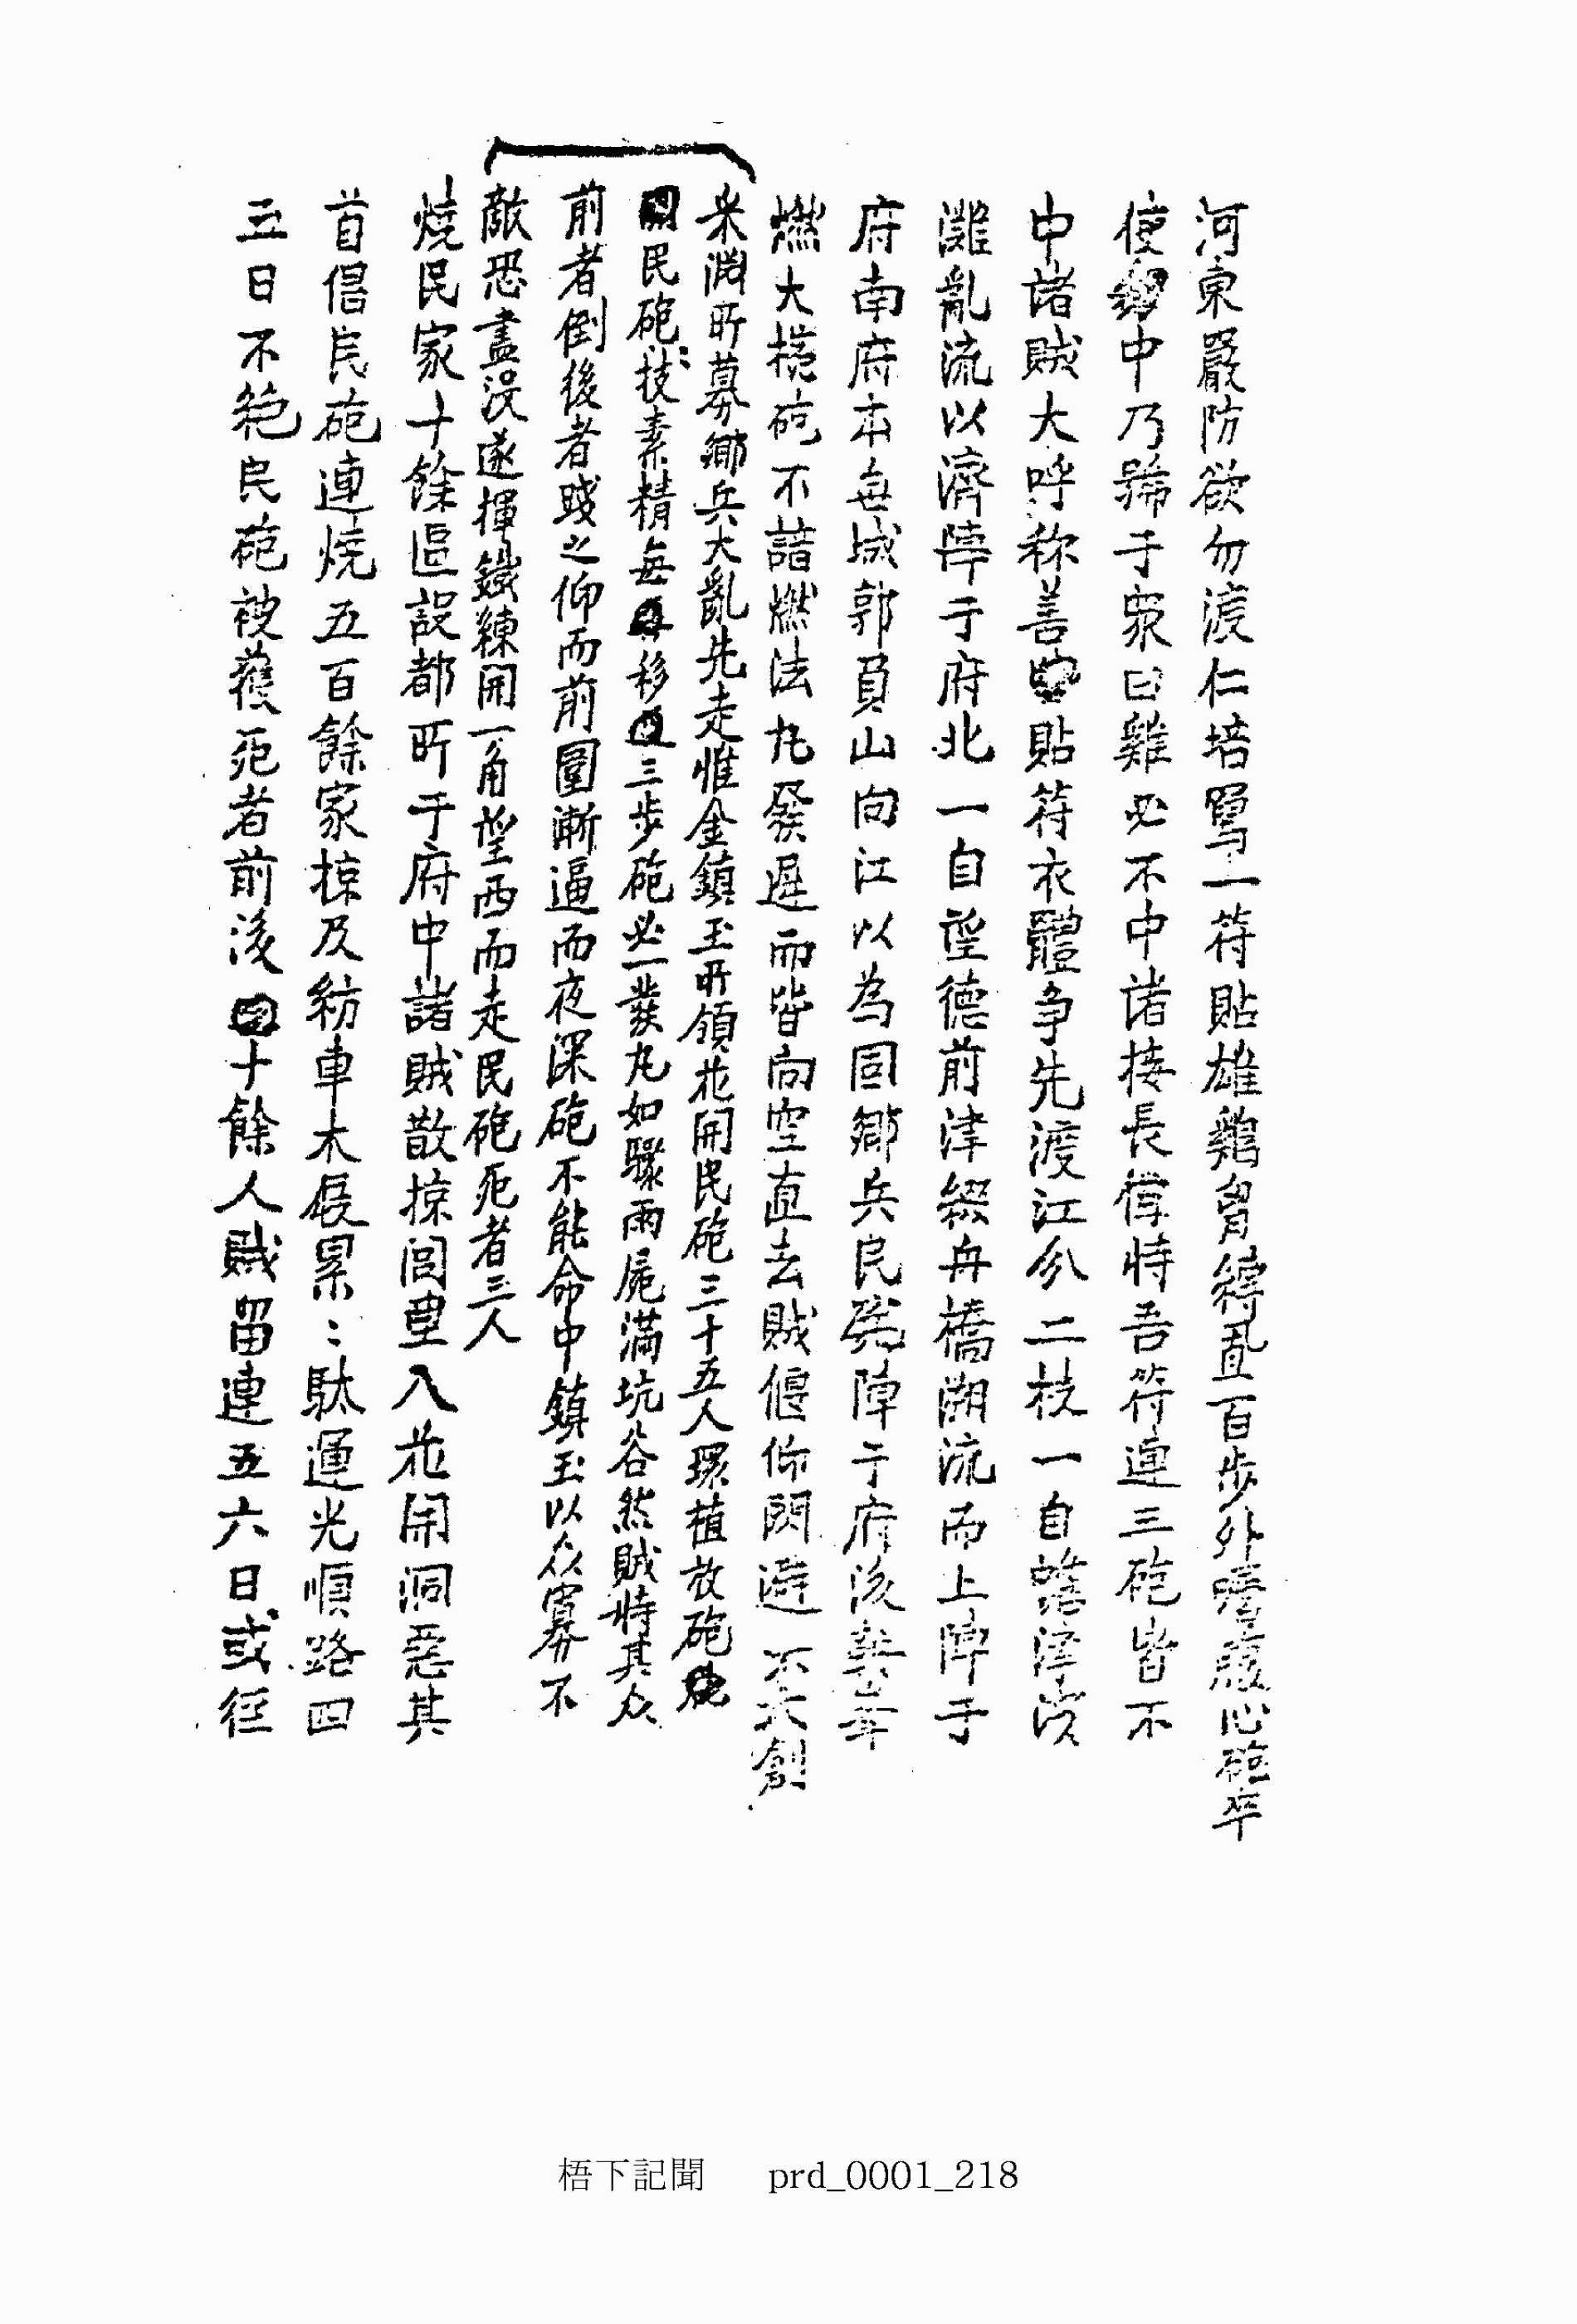 河東嚴防欲勿渡仁培寫一符貼雄鷄胷縛置百步外嗾腹心砲卒
使中乃號于衆曰雞必不中諸接長得恃吾符連三砲皆不
中諸賊大呼称善貼符衣體爭先渡江分二枝一自蟾津汝
灘亂流以濟陣于府北一自望德前津綴舟橋溯流而上陣于
府南府本無城郭負山向江以為固鄕兵民砲陣于府後峯
燃大椀砲不諳燃法丸發遲而皆向空直去賊偃仰閃避不大創
米淵所募鄉兵大亂先走惟金鎭玉所領花開民砲三十五人環植放砲
民砲技素精每移三步砲必一發丸如驟雨屍滿坑谷然賊恃其众
前者倒後者踐之仰而前圍漸逼而夜深砲不能命中鎭玉以众寡不
敵恐盡沒遂揮鐵鍊開一角望西而走民砲死者三人
燒民家十餘區設都所于府中諸賊散掠閭里入花開洞惡其
首倡民砲連燒五百餘家掠及紡車木屐累〻駄運光順路四
五日不絶民砲被獲死者前後十餘人賊留連五六日或徑
梧下記聞 prd_0001_218